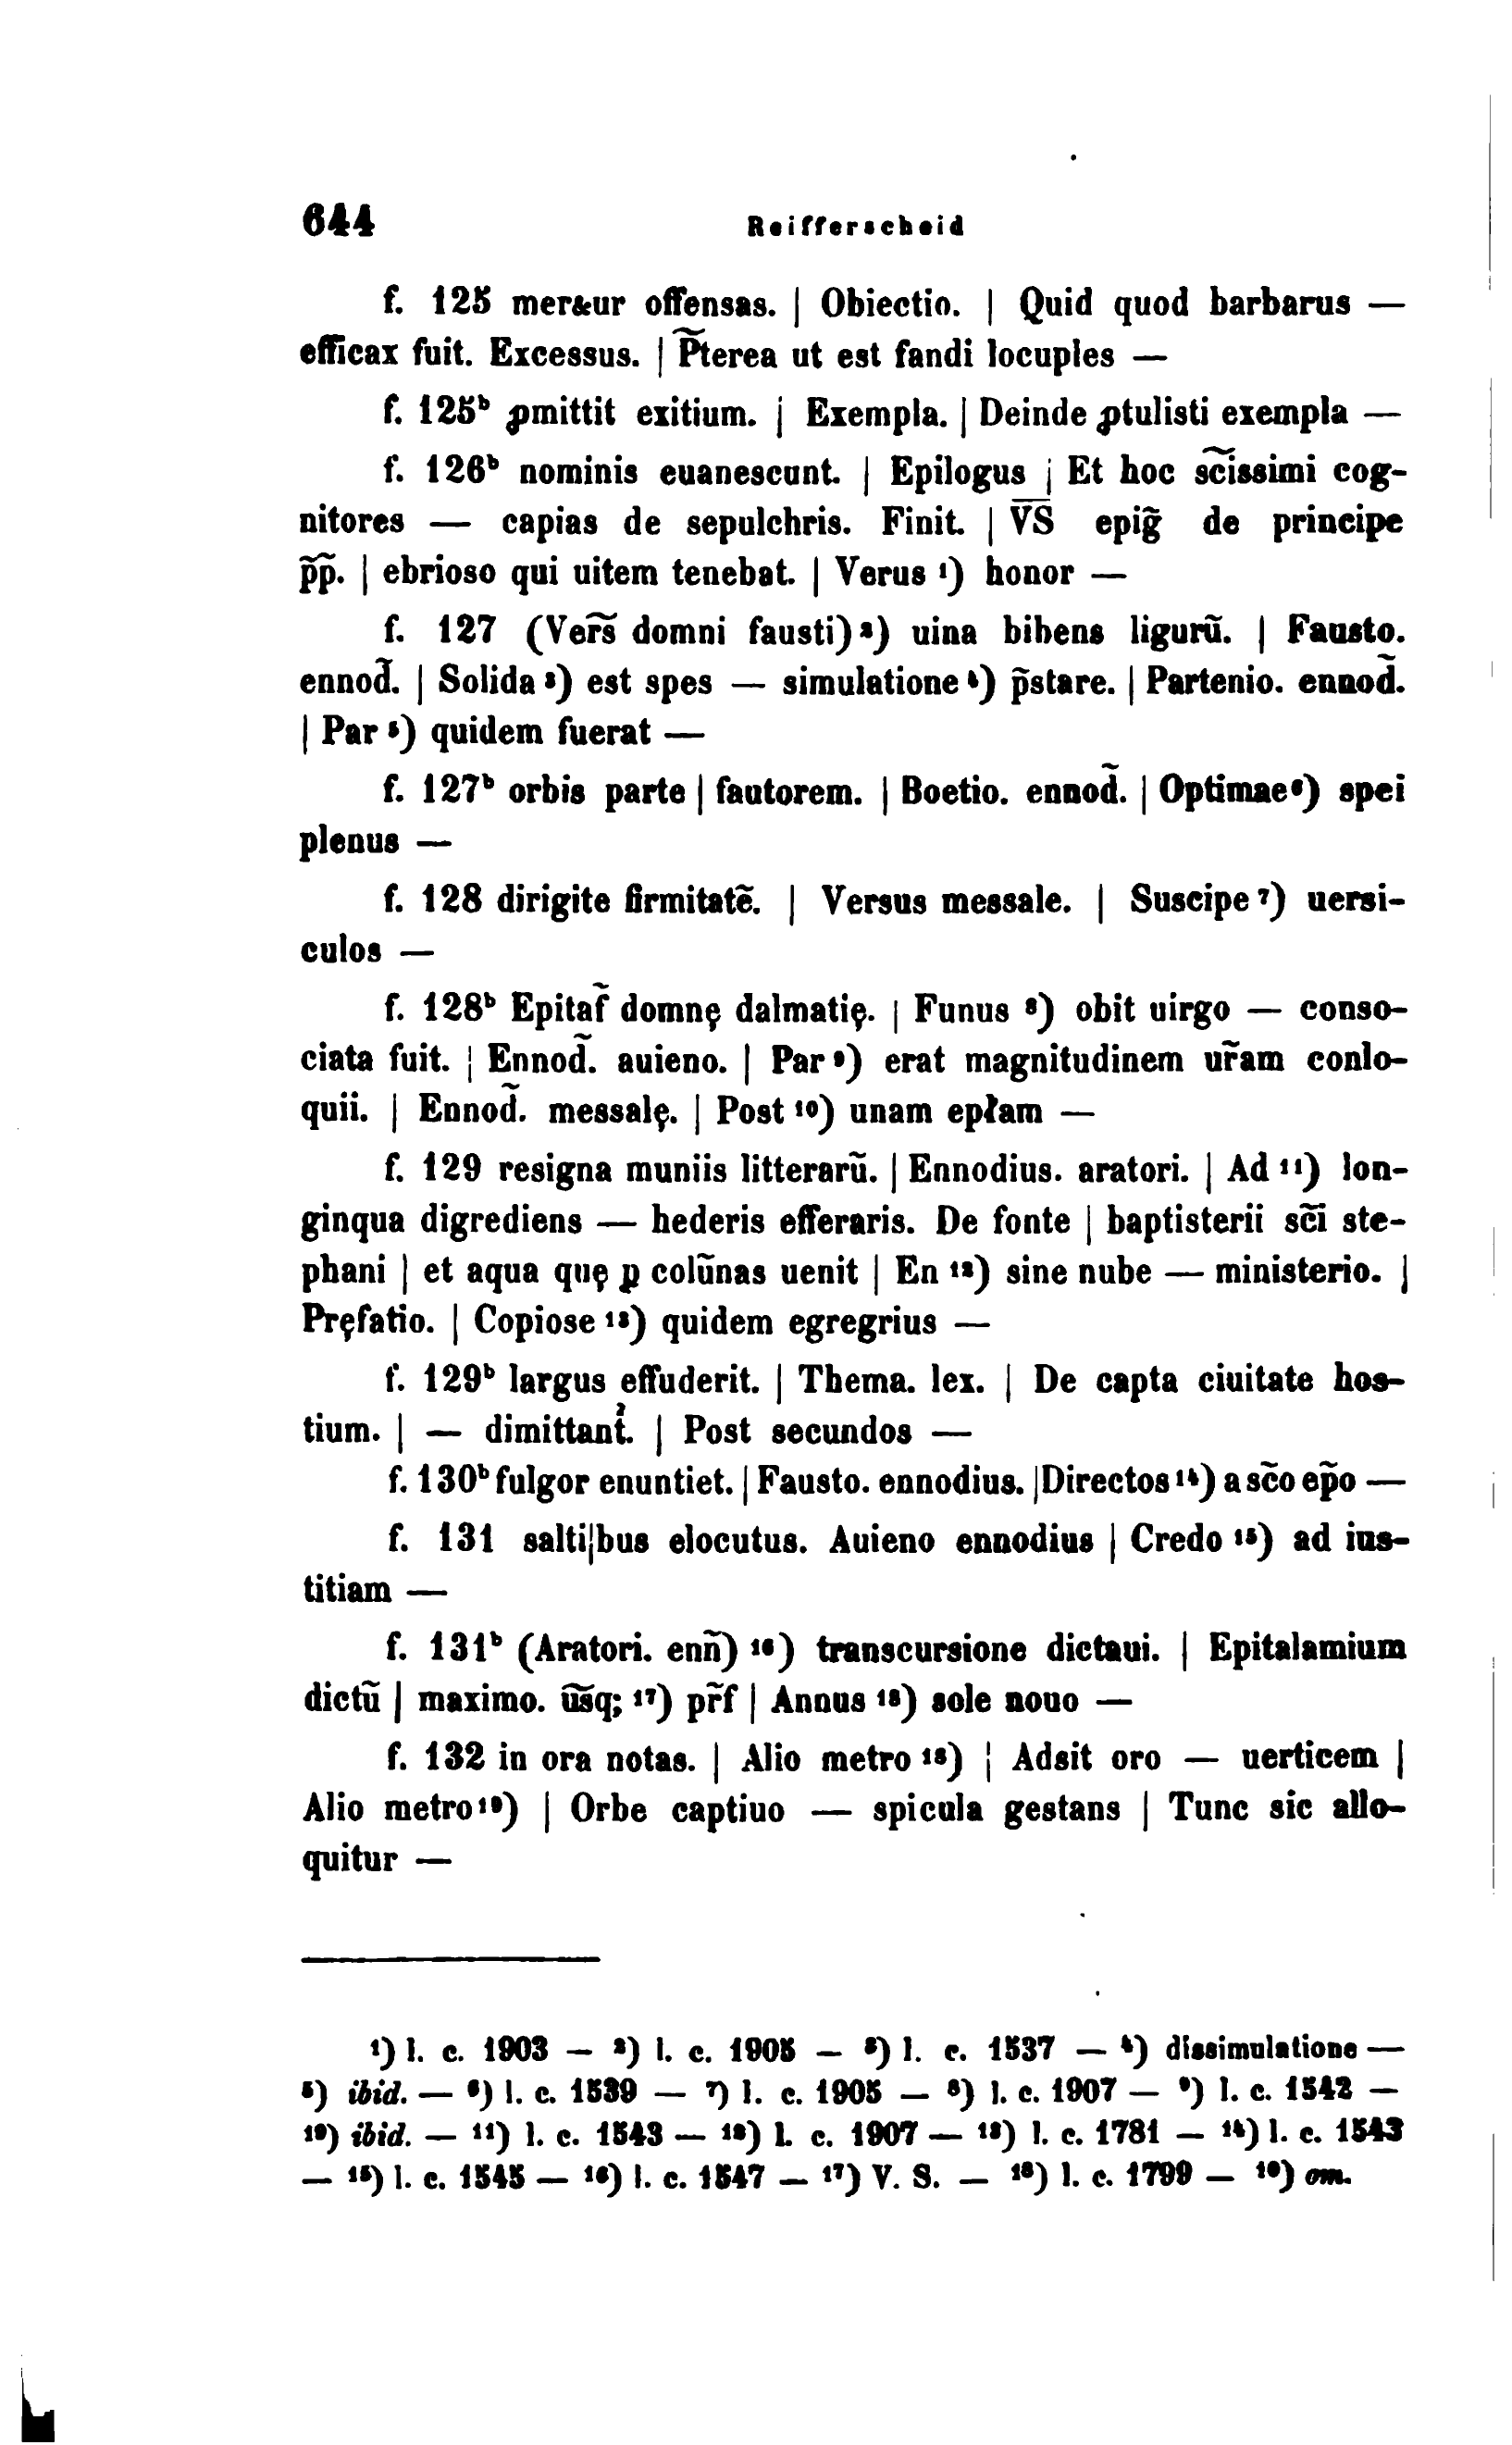 644 Reifferscheid
f. 125 mer&ur offensas. | Obiectio. | Quid quod barbarus —
efficax fuit. Excessus. | P̃terea ut est fandi locuples —
f. 125ᵇ ꝓmittit exitium. | Exempla. | Deinde ꝓtulisti exempla —
f. 126ᵇ nominis euanescunt. | Epilogus | Et hoc sc̃issimi cog-
nitores — capias de sepulchris. Finit. | V̅S̅ epig̃ de principe
p̃p̃. | ebrioso qui uitem tenebat. | Verus ¹) honor —
f. 127 (Ver̃s̃ domni fausti)²) uina bibens ligurũ. | Fausto.
ennod̃. | Solida³) est spes — simulatione⁴) p̃stare. | Partenio. ennod̃.
| Par⁵) quidem fuerat —
f. 127ᵇ orbis parte | fautorem. | Boetio. ennod̃. | Optimae⁶) spei
plenus —
f. 128 dirigite firmitatẽ. | Versus messale. | Suscipe⁷) uersi-
culos —
f. 128ᵇ Epitaf̃ domnę dalmatię. | Funus ⁸) obit uirgo — conso-
ciata fuit. | Ennod̃. auieno. | Par⁹) erat magnitudinem ur̃am conlo-
quii. | Ennod̃. messalę. | Post¹⁰) unam epłam —
f. 129 resigna muniis litterarũ. | Ennodius. aratori. | Ad¹¹) lon-
ginqua digrediens — hederis efferaris. De fonte | baptisterii sc̃i ste-
phani | et aqua quę ꝑ colũnas uenit | En¹²) sine nube — ministerio. |
Pręfatio. | Copiose¹³) quidem egregrius —
f. 129ᵇ largus effuderit. | Thema. lex. | De capta ciuitate hos-
tium. | — dimittant᷑. | Post secundos —
f. 130ᵇ fulgor enuntiet. | Fausto. ennodius. |Directos¹⁴) a sc̃o ep̃o —
f. 131 salti|bus elocutus. Auieno ennodius | Credo¹⁵) ad ius-
titiam —
f. 131ᵇ (Aratori. enñ)¹⁶) transcursione dictaui. | Epitalamium
dictũ | maximo. ũs̃q;¹⁷) pr̃f | Annus¹⁸) sole nouo —
f. 132 in ora notas. | Alio metro¹⁸) | Adsit oro — uerticem |
Alio metro¹⁹) | Orbe captiuo — spicula gestans | Tunc sic allo-
quitur —
¹) l. c. 1903 — ²) l. c. 1905 — ³) l. c. 1537 — ⁴) dissimulatione —
⁵) ibid. — ⁶) l. c. 1539 — ⁷) l. c. 1905 — ⁸) l. c. 1907 — ⁹) l. c. 1542 —
¹⁰) ibid. — ¹¹) l. c. 1543 — ¹²) l. c. 1907 — ¹³) l. c. 1781 — ¹⁴) l. c. 1543
— ¹⁵) l. c. 1545 — ¹⁶) l. c. 1547 — ¹⁷) V. S. — ¹⁸) l. c. 1799 — ¹⁹) om.